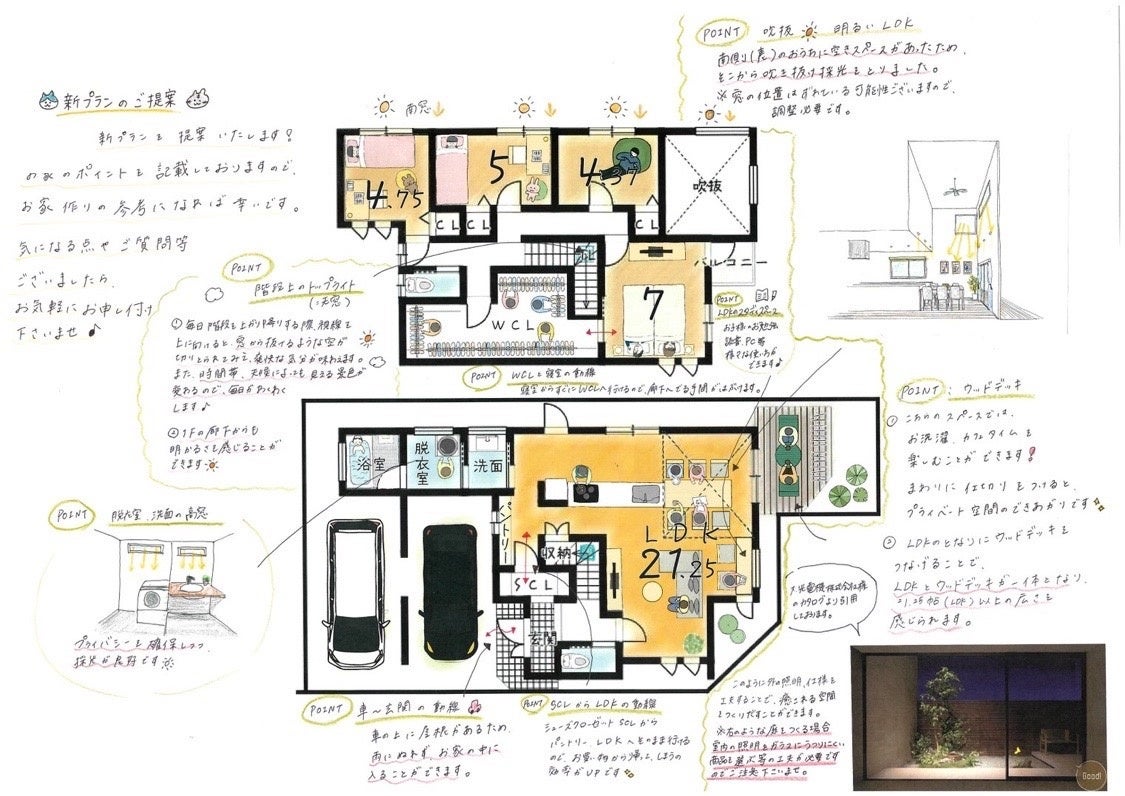 新プランのご提案
新プランを提案いたします!
のポイントを記載しておりますので、
お家作りの参考になれば幸いです。
気になる点やご質問等
ございましたら、
お気軽にお申し付け
下さいませ♪
POINT
階段上のトップライト
(天窓)
①毎日階段を上がり降りする際、視線を
上に向けると、窓から抜けるような空が
切りとられてみえ、爽快な気分が味わえます。
また、時間帯、天候によっても見える景色が
変わるので、毎日がわくわく
します♪
②1Fの廊下からも
明かるさを感じることが
できます
POINT
脱衣室、洗面の高窓
プライバシーを確保しつつ
採光が良好です
南窓
4.75
5
4.37
吹抜
CL
CL
CL
バルコニー
WCL
7
POINT
LDKのスタディスペース
お子様のお勉強
読書、PC等
様々な使い方が
できます♪
POINT WCLと寝室の動線
寝室からすぐにWCLへ行けるので、廊下へでる手間がはぶけます。
POINT 吹抜 明るいLDK
南側(裏)のおうちに空きスペースがあったため、
そこから吹き抜け採光をとりました。
※窓の位置はずれている可能性ございますので、
調整必要です。
浴室
脱衣室
洗面
パントリー
収納
SCL
玄関
LDK
21.25
POINT:ウッドデッキ
①こちらのスペースでは、
お洗濯、カフェタイムを
楽しむことができます!
まわりに仕切りをつけると、
プライベート空間のできあがりです
②LDKのとなりにウッドデッキを
つなげることで、
LDKとウッドデッキが一体となり、
21.25帖(LDK)以上の広さを
感じられます。
大光電機株式会社様
のカタログより引用
しております。
POINT 車~玄関の動線
車の上に屋根があるため、
雨にぬれず、お家の中に
入ることができます。
POINT SCLからLDKの動線
シューズクローゼットSCLから
パントリー、LDKへとそのまま行ける
ので、お買い物から帰り、しまうの
効率がUPです
このように外の照明、仕様を
工夫することで、癒される空間
をつくりだすことができます。
※右のような庭をつくる場合
室内の照明をガラスにうつりにくい
商品を選ぶ等の工夫が必要です
のでご注意下さいませ。
Good!